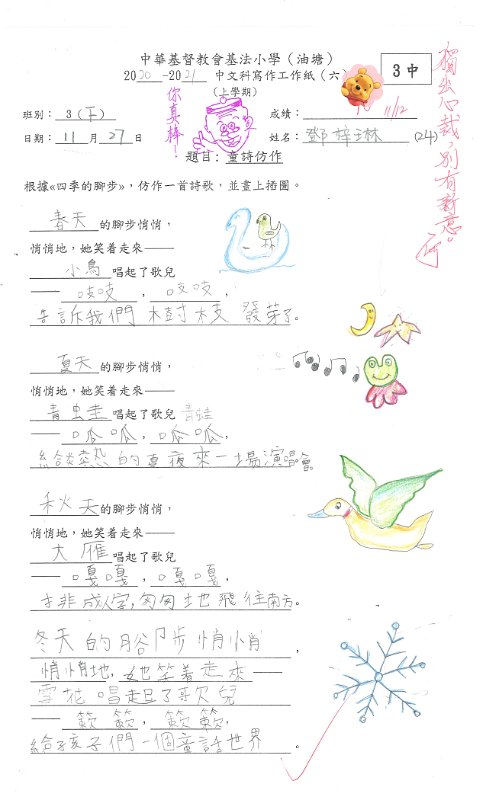 中華基督教會基法小學（油塘）
2020 -2021 中文科寫作工作紙（六）
（上學期）
3中
你真棒！
11/12
獨出心裁，別有新意。
班別： 3(下) 成績：
日期： 11 月 27 日 姓名： 鄧梓琳 (24)
題目：童詩仿作
根據«四季的腳步»，仿作一首詩歌，並畫上插圖。
春天 的腳步悄悄，
悄悄地，她笑着走來——
小鳥 唱起了歌兒
—— 吱吱 ， 吱吱 ，
告訴我們樹枝發芽了。
夏天 的腳步悄悄，
悄悄地，她笑着走來——
青虫圭 唱起了歌兒 青蛙
—— 呱呱 ， 呱呱 ，
給炎熱的夏夜來一場演唱會
秋天 的腳步悄悄，
悄悄地，她笑着走來——
大雁 唱起了歌兒
—— 嘎嘎 ， 嘎嘎 ，
才非成人字，匆匆地飛往南方。
冬天的腳步悄悄 ，
悄悄地，她笑着走來——
雪花唱起了歌兒
—— 簌簌 ， 簌簌 ，
給孩子們一個童話世界 。